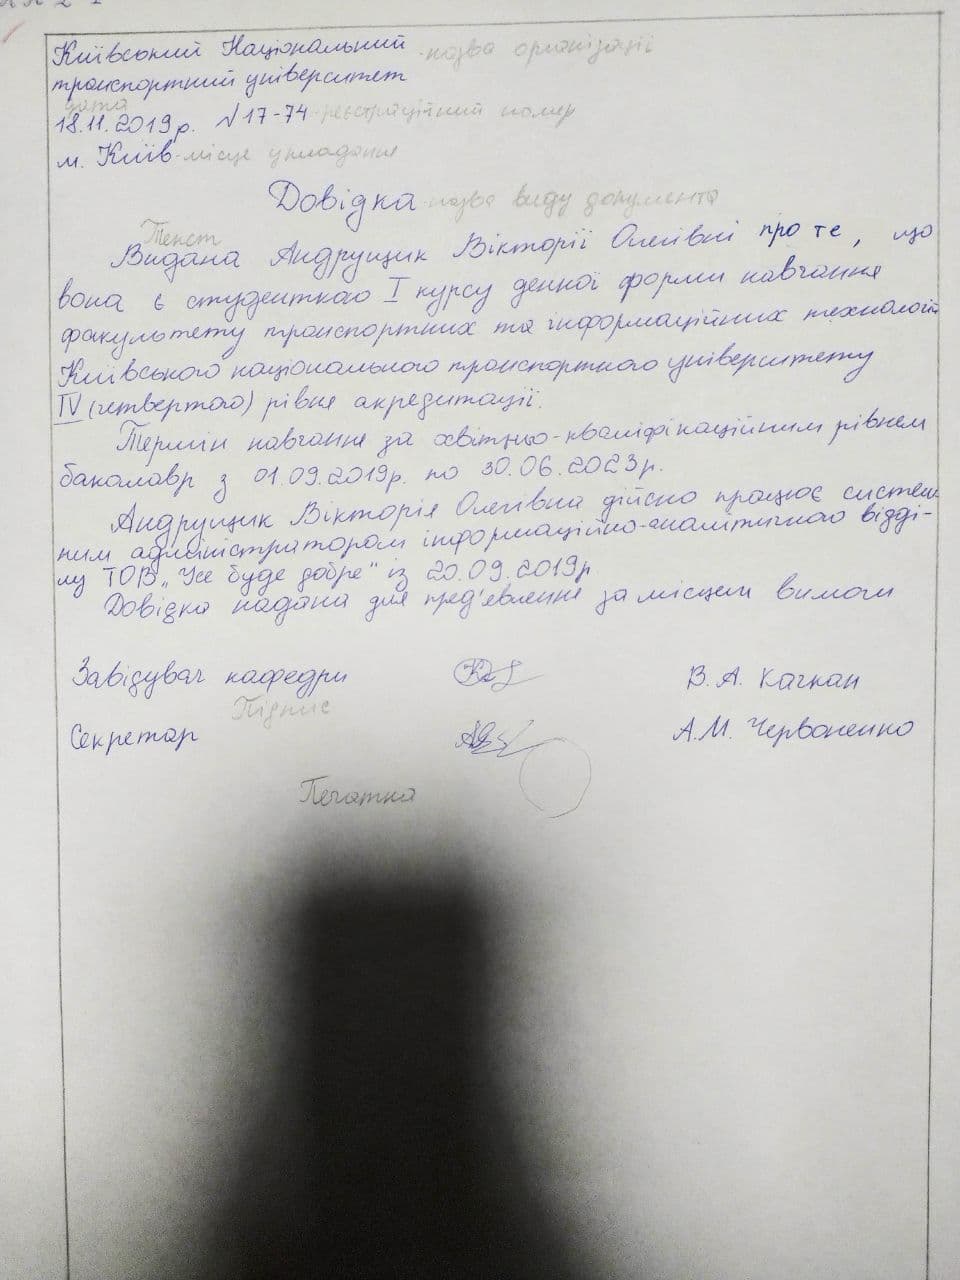 Київський Національний -назва організації
транспортний університет
дата
18.11.2019р. №17-74-реєстраційний номер
м. Київ-місце укладання
Довідка-назва виду документа
Текст
Видана Андрущик Вікторії Олегівні про те, що
вона є студенткою I курсу денної форми навчання
факультету транспортних та інформаційних технологій
Київського національного транспортного університету
IV (четвертого) рівня акредитації.
Термін навчання за освітньо-кваліфікаційним рівнем
бакалавр з 01.09.2019р. по 30.06.2023р.
Андрущик Вікторія Олегівна дійсно працює систем-
ним адміністратором інформаційно-аналітичного відді-
лу ТОВ „Усе буде добре" із 20.09.2019р
Довідка надана для пред'явлення за місцем вимоги
Завідувач кафедри В. А. Качкан
Підпис
Секретар А.М. Червоненко
Печатка